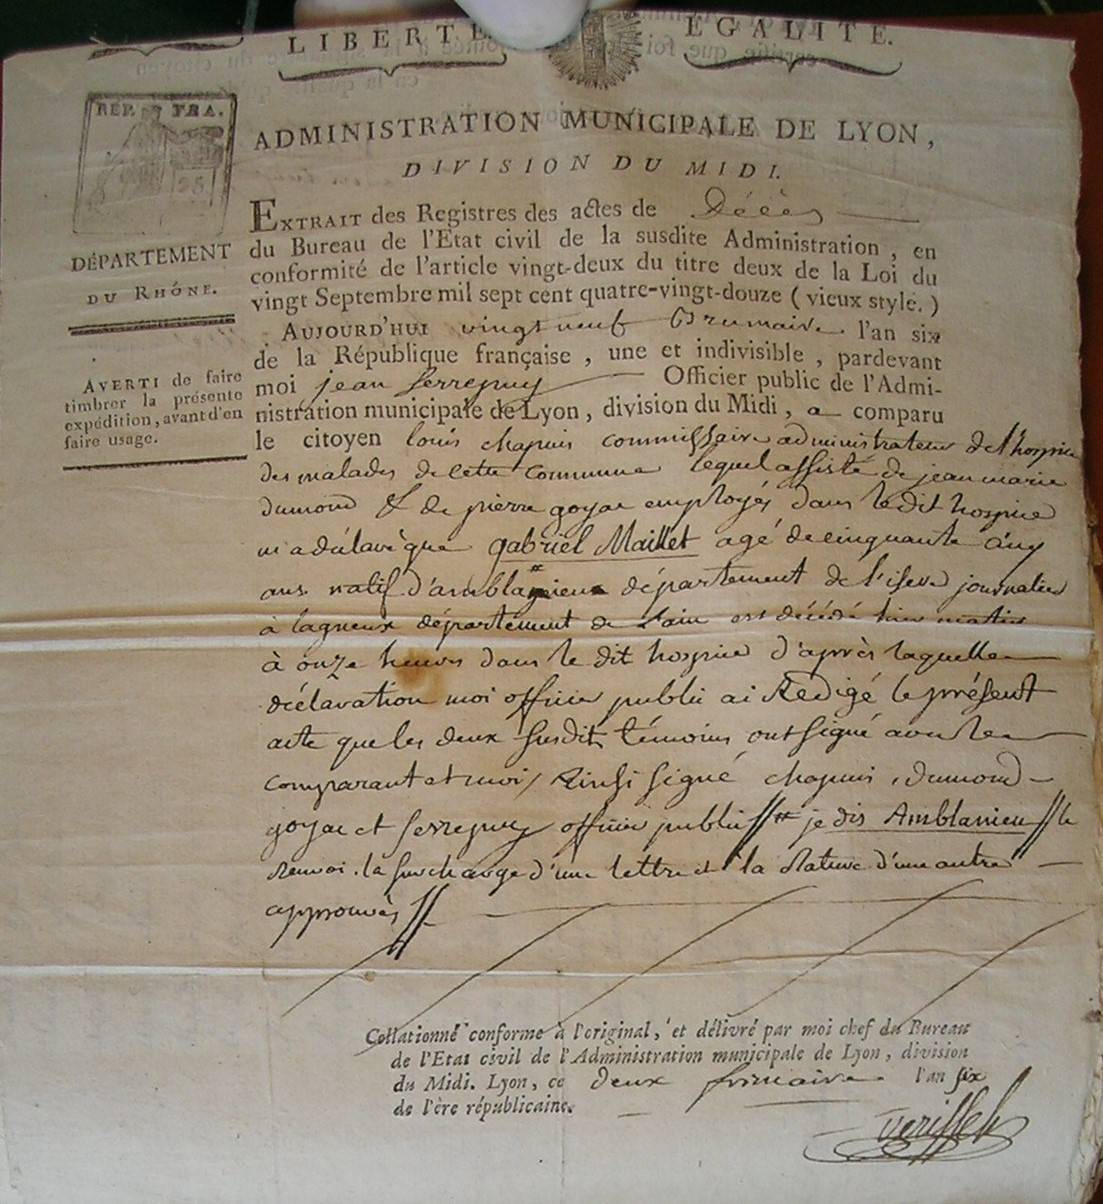 LIBERTÉ ÉGALITÉ.
REP. FRA.
ADMINISTRATION MUNICIPALE DE LYON,
DIVISION DU MIDI.
DÉPARTEMENT
DU RHÔNE.
AVERTI de faire
timbrer la présente
expédition, avant d'en
faire usage.
EXTRAIT des Registres des actes de Décès
du Bureau de l'Etat civil de la susdite Administration, en
conformité de l'article vingt-deux du titre deux de la Loi du
vingt Septembre mil sept cent quatre-vingt-douze (vieux style.)
AUJOURD'HUI vingt neuf Brumaire l'an six
de la République française, une et indivisible, pardevant
moi jean Serrepuy Officier public de l'Admi-
nistration municipale de Lyon, division du Midi, a comparu
le citoyen louis chapuis commissaire administrateur de l'hospice
des malades de cette commune lequel assisté de jean marie
dumond & de pierre goyac employés dans le dit hospice
m'a déclaré que gabriel Maillet agé de cinquante cinq
ans natif d'amblagnieu département de l'isere journalier
à lagneux département de l'ain est décédé hier matin
à onze heures dans le dit hospice d'après laquelle
déclaration moi officier public ai Redigé le présent
acte que les deux susdits témoins ont signé avec le
comparant et moi / Ainsi signé chapuis, dumond
goyac et Serrepuy officier public // # je dis Amblanieu // le
renvoi, la surcharge d'une lettre et la Rature d'une autre
approuvés //
Collationné conforme à l'original, et délivré par moi chef du Bureau
de l'Etat civil de l'Administration municipale de Lyon, division
du Midi. Lyon, ce deux frimaire l'an six
de l'ère républicaine.